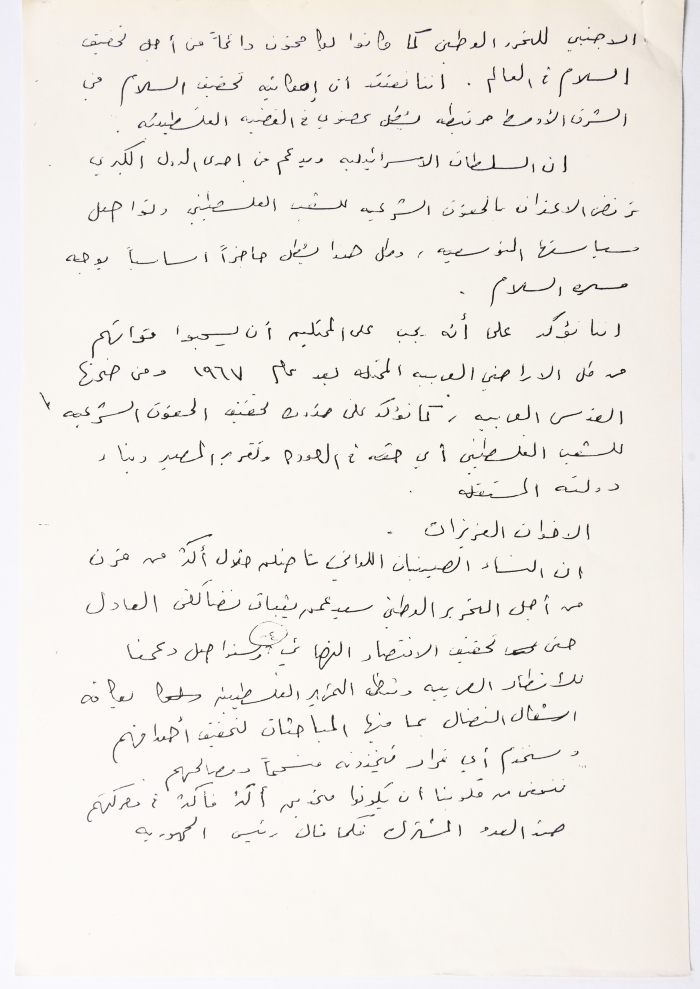 الاجنبي للتحرر الوطني كما وكانوا يكافحون دائماً من أجل تحقيق
السلام في العالم . اننا نعتقد أن إمكانية تحقيق السلام في
الشرق الأوسط مرتبطه بشكل عضوي في القضيه الفلسطينيه .
ان السلطات الاسرائيليه وبدعم من احدى الدول الكبرى
ترفض الاعتراف بالحقوق الشرعيه للشعب الفلسطيني وتواصل
سياستها التوسعيه ، وظل هذا يشكل حاجزاً أساسياً بوجه
مسيرة السلام .
اننا نؤكد على أنه يجب على المحتلين أن يسحبوا قواتهم
من كل الاراضي العربيه المحتله بعد عام ١٩٦٧ ومن ضمنها
القدس العربيه ، كما نؤكد على ضرورة تحقيق الحقوق الشرعيه
للشعب الفلسطيني أي حقه في العودة وتقرير المصير وبناء
دولته المستقله .
الاخوات العزيزات .
ان النساء الصينيات اللواتي ناضلن خلال أكثر من قرن
من أجل التحرير الوطني سيدعمن بثبات نضالكن العادل
حتى تحقيق الانتصار النهائي وسنواصل دعمنا
للأقطار العربيه ومنظمة التحرير الفلسطينيه بكافة
اشكال النضال بما فيها المباحثات لتحقيق أهدافهم
أي قرار يتخذونه منسجماً ومصالحهم .
نتمنى من قلوبنا أن يكونوا متحدين أكثر فأكثر في معركتهم
ضد العدو المشترك فكما قال رئيس الجمهوريه